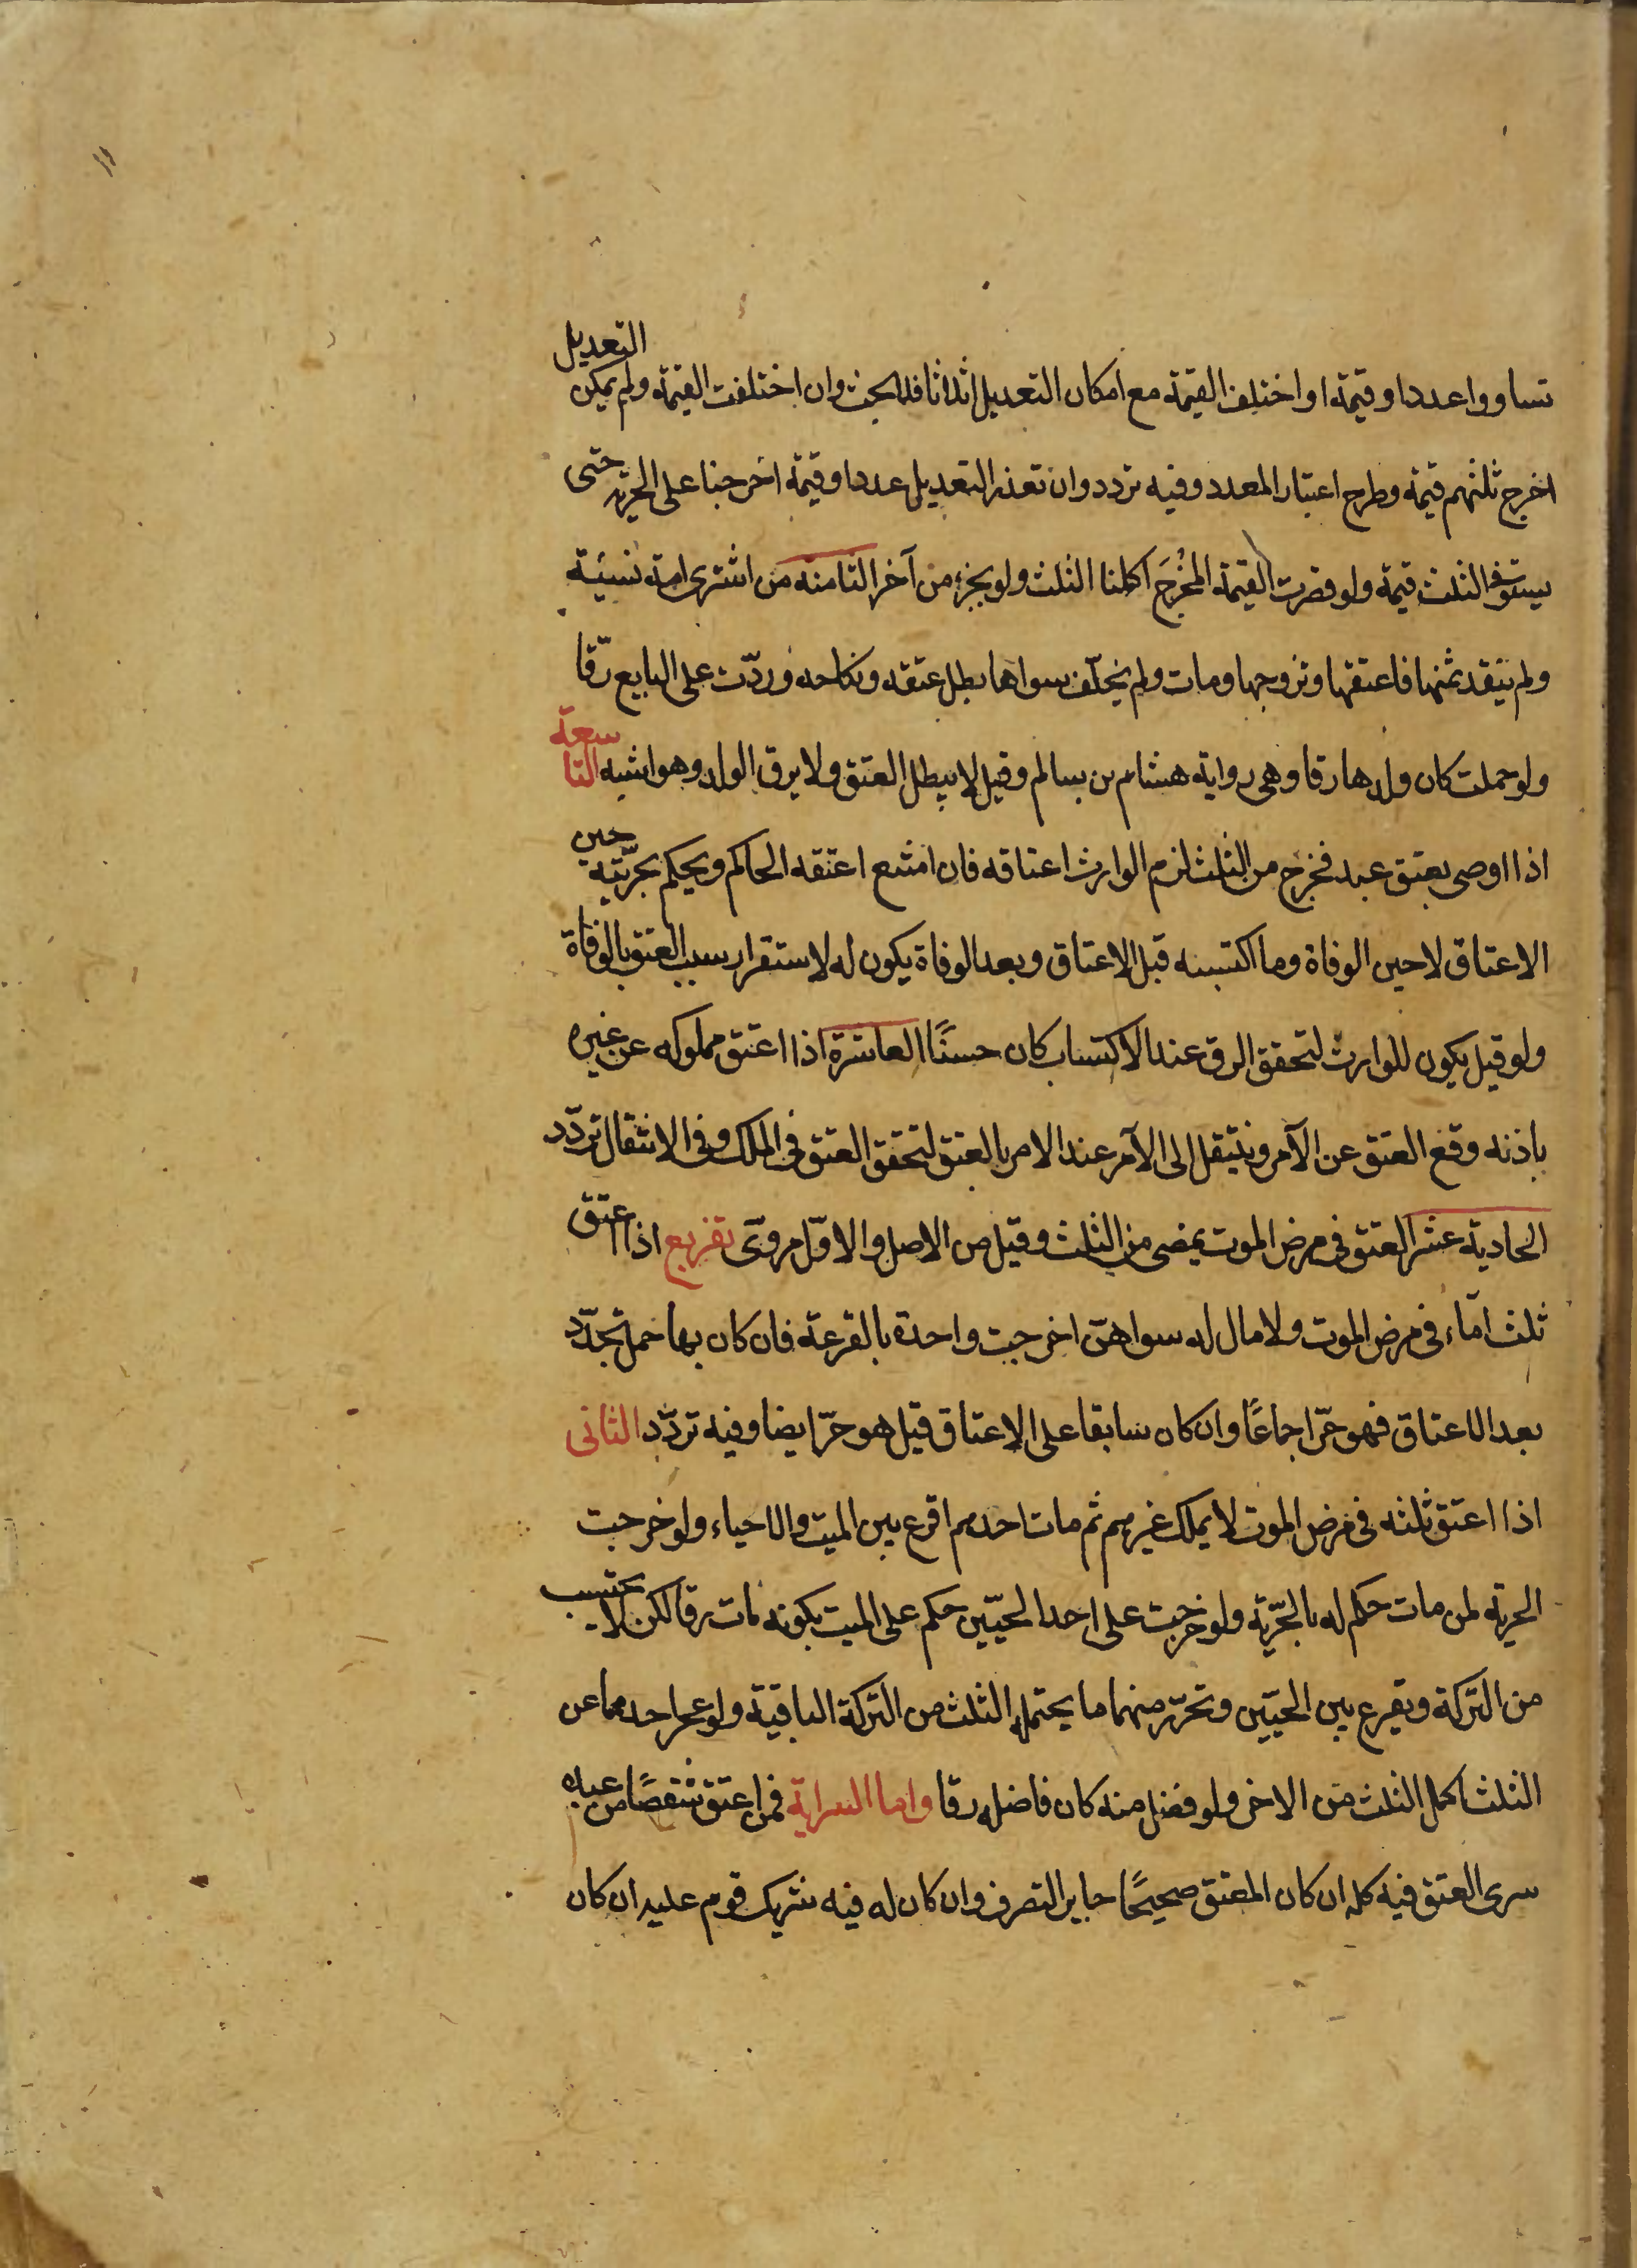 ١١
تساووا عددا وقيمة او اختلف القيمة مع امكان التعديل اثلاثا فلا بحث وان اختلفت القيمة ولم يمكن التعديل
اخرج ثلثهم قيمة وطرح اعتبار العدد وفيه تردد وان تعذر التعديل عددا وقيمة اخرجنا على الحرية حتى
يستوفى الثلث قيمة ولو قصرت القيمة المخْرَج اكملنا الثلث ولو بجزء من آخر الثامنة من اشترى امة نسيئة
ولم ينقد ثمنها فاعتقها وتزوجها ومات ولم يخلّف سواها بطل عتقه ونكاحه وردّت على البايع رقّا
ولو حملت كان ولدها رقا وهى رواية هشام بن سالم وقيل لا يبطل العتق ولا يرق الولد وهو اشبه التاسعة
اذا اوصى بعتق عبد فخرج من الثلث لزم الوارث اعتاقه فان امتنع اعتقه الحاكم ويحكم بحرّيته حين
الاعتاق لا حين الوفاة وما اكتسبه قبل الاعتاق وبعد الوفاة يكون له لاستقرار سبب العتق بالوفاة
ولو قيل يكون للوارث لتحقق الرق عند الاكتساب كان حسنًا العاشرة اذا اعتق مملوكه عن غيره
باذنه وقع العتق عن الآمر وينتقل الى الآمر عند الامر بالعتق لتحقق العتق فى الملك وفى الانتقال تردّد
الحادية عشر العتق فى مرض الموت يمضى من الثلث وقيل من الاصل والاوّل مروىّ تفريع اذا اعتق
ثلث اماء فى مرض الموت ولا مال له سواهنّ اخرجت واحدة بالقرعة فان كان بها حمل تجدّد
بعد الاعتاق فهو حرّ اجماعًا وان كان سابقا على الاعتاق قيل هو حرّ ايضا وفيه تردّد الثانى
اذا اعتق ثلثه فى مرض الموت لا يملك غيرهم ثم مات احدهم اقرع بين الميت والاحياء ولو خرجت
الحرية لمن مات حكم له بالحرّية ولو خرجت على احد الحيّين حكم على الميت بكونه مات رقا لكن لا يحتسب
من التركة ويقرع بين الحيّين وتحرّر منهما ما يحتمله الثلث من التركة الباقية ولو عجز احدهما عن
الثلث اكمل الثلث من الاخر ولو فضل منه كان فاضله رقا واما السراية فمن اعتق شقصًا من عبده
سرى العتق فيه كله ان كان المعتق صحيحًا جايز التصرف وان كان له فيه شريك قوم عليه ان كان